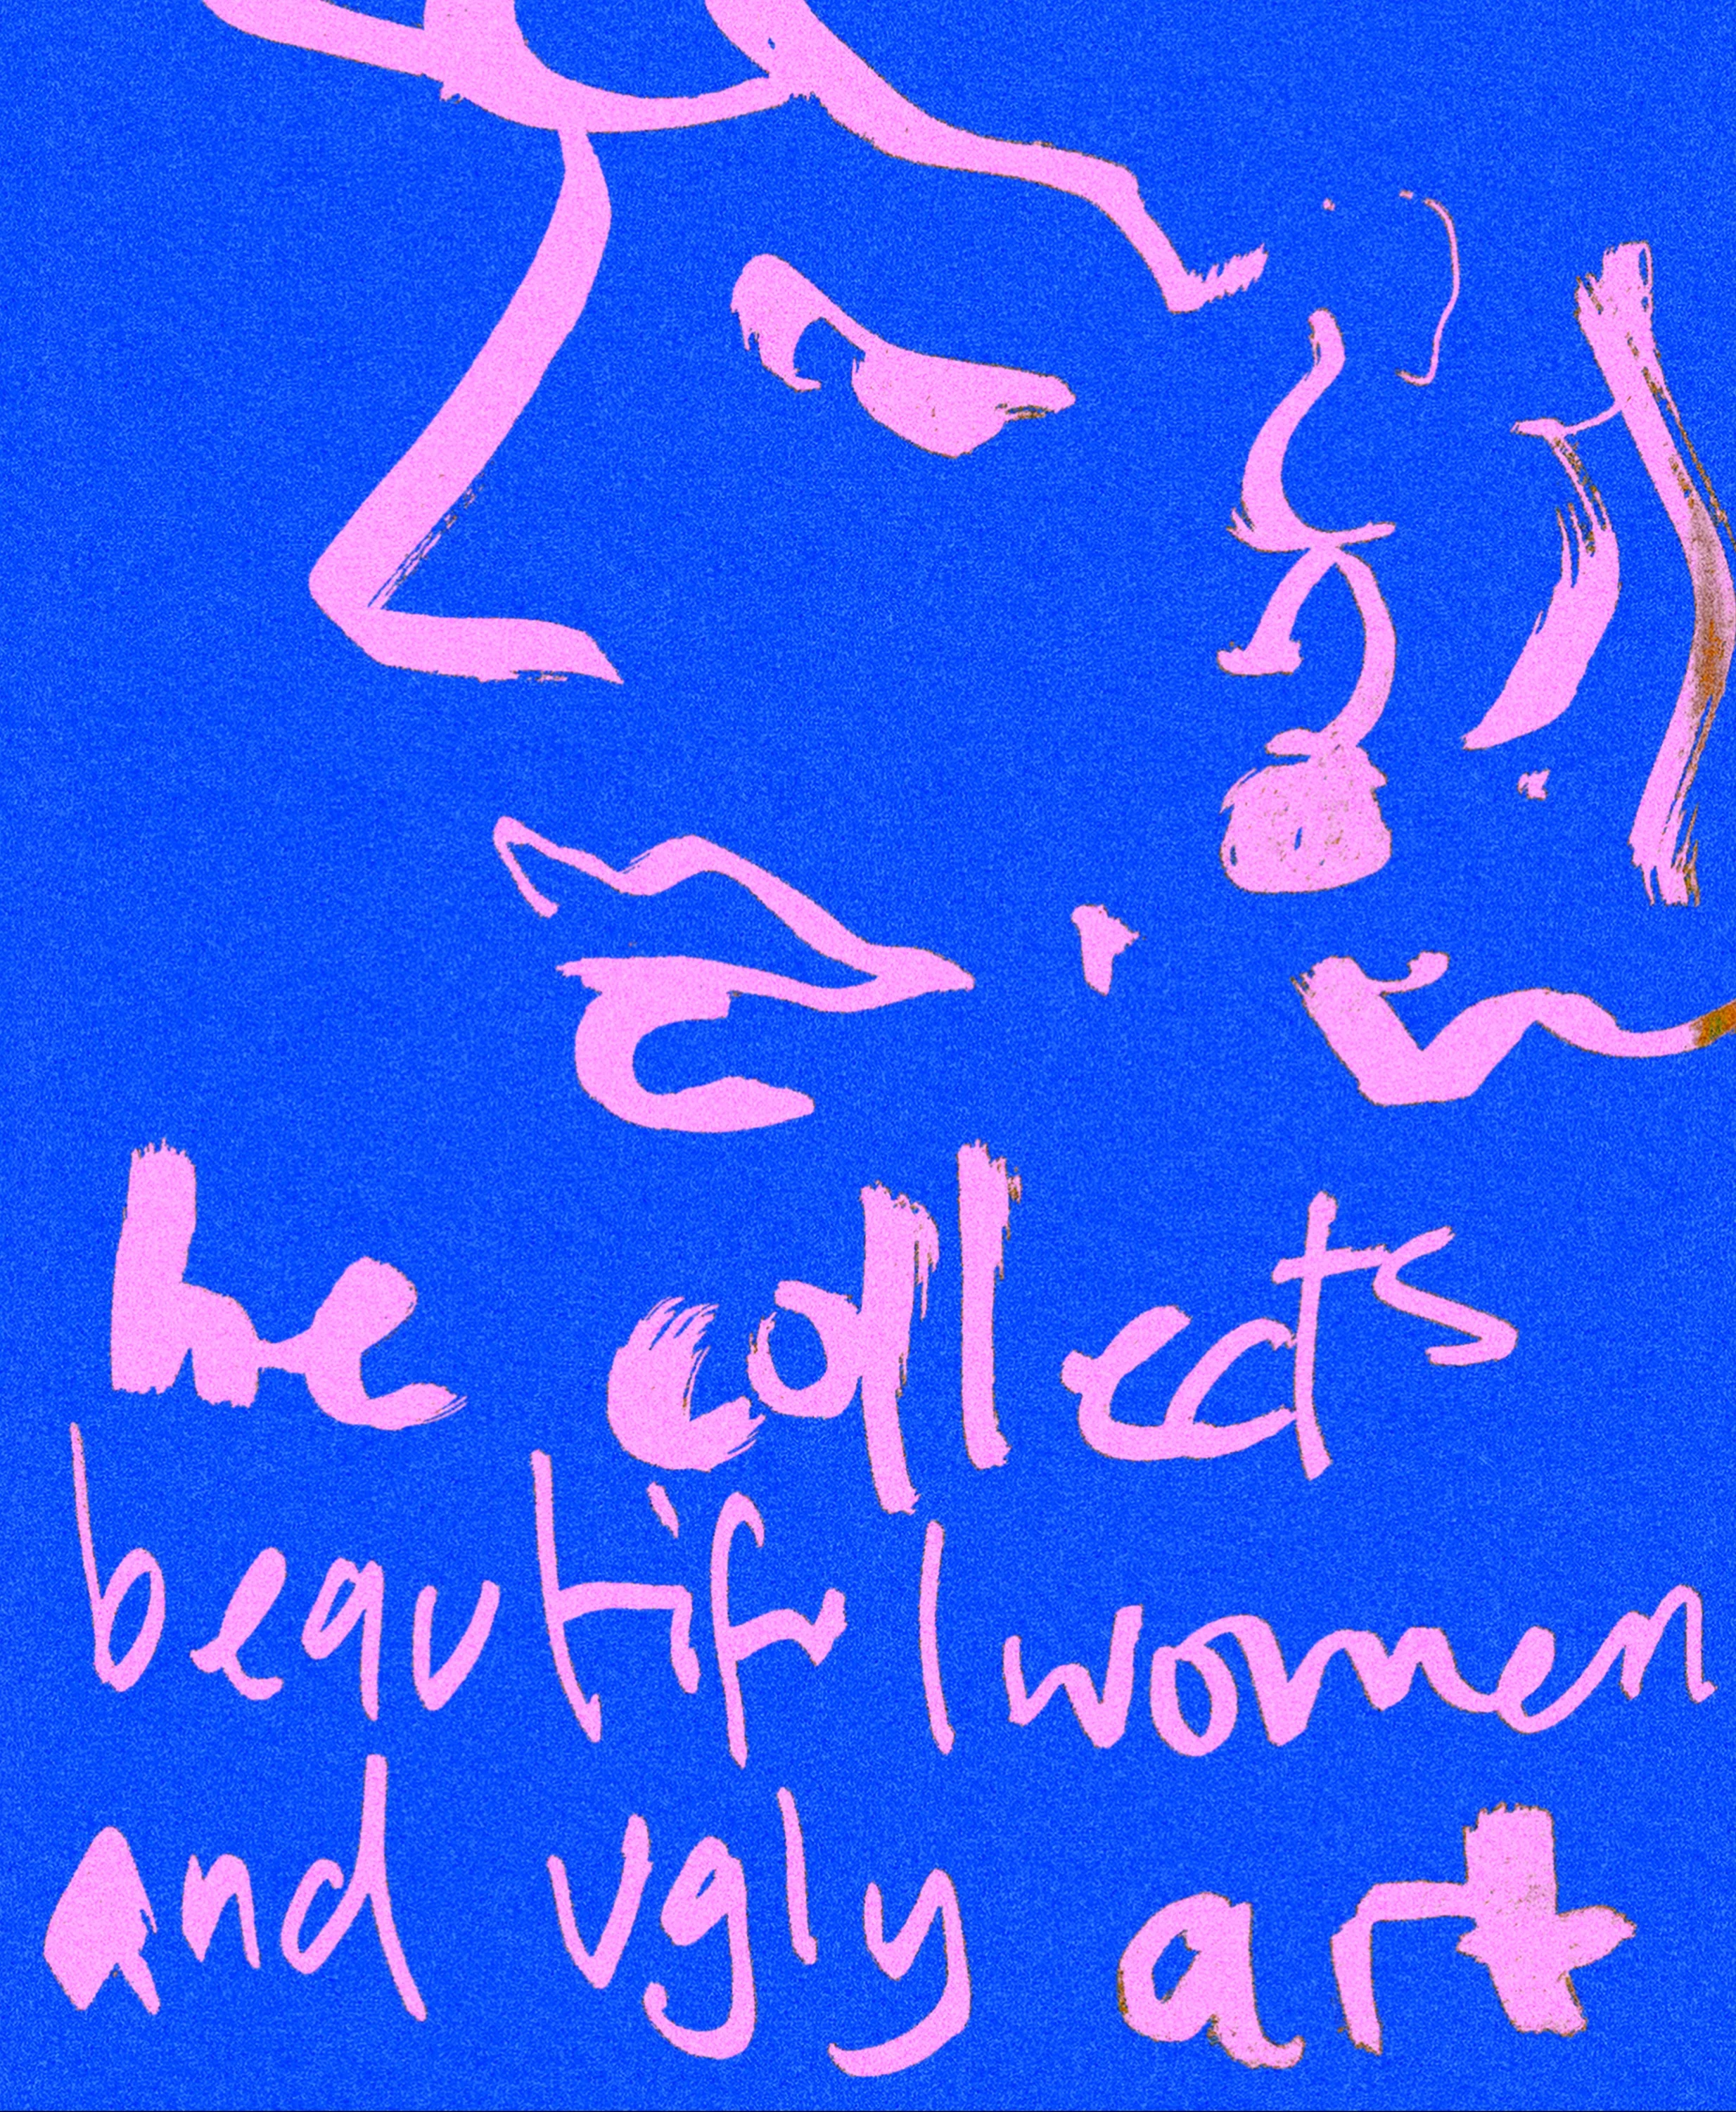 he collects
beautiful women
and ugly art